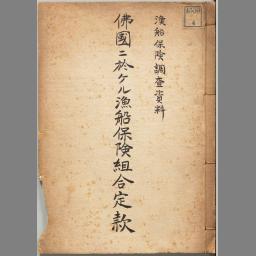 漁船保険調査資料
佛國ニ於ケル漁船保険組合定款